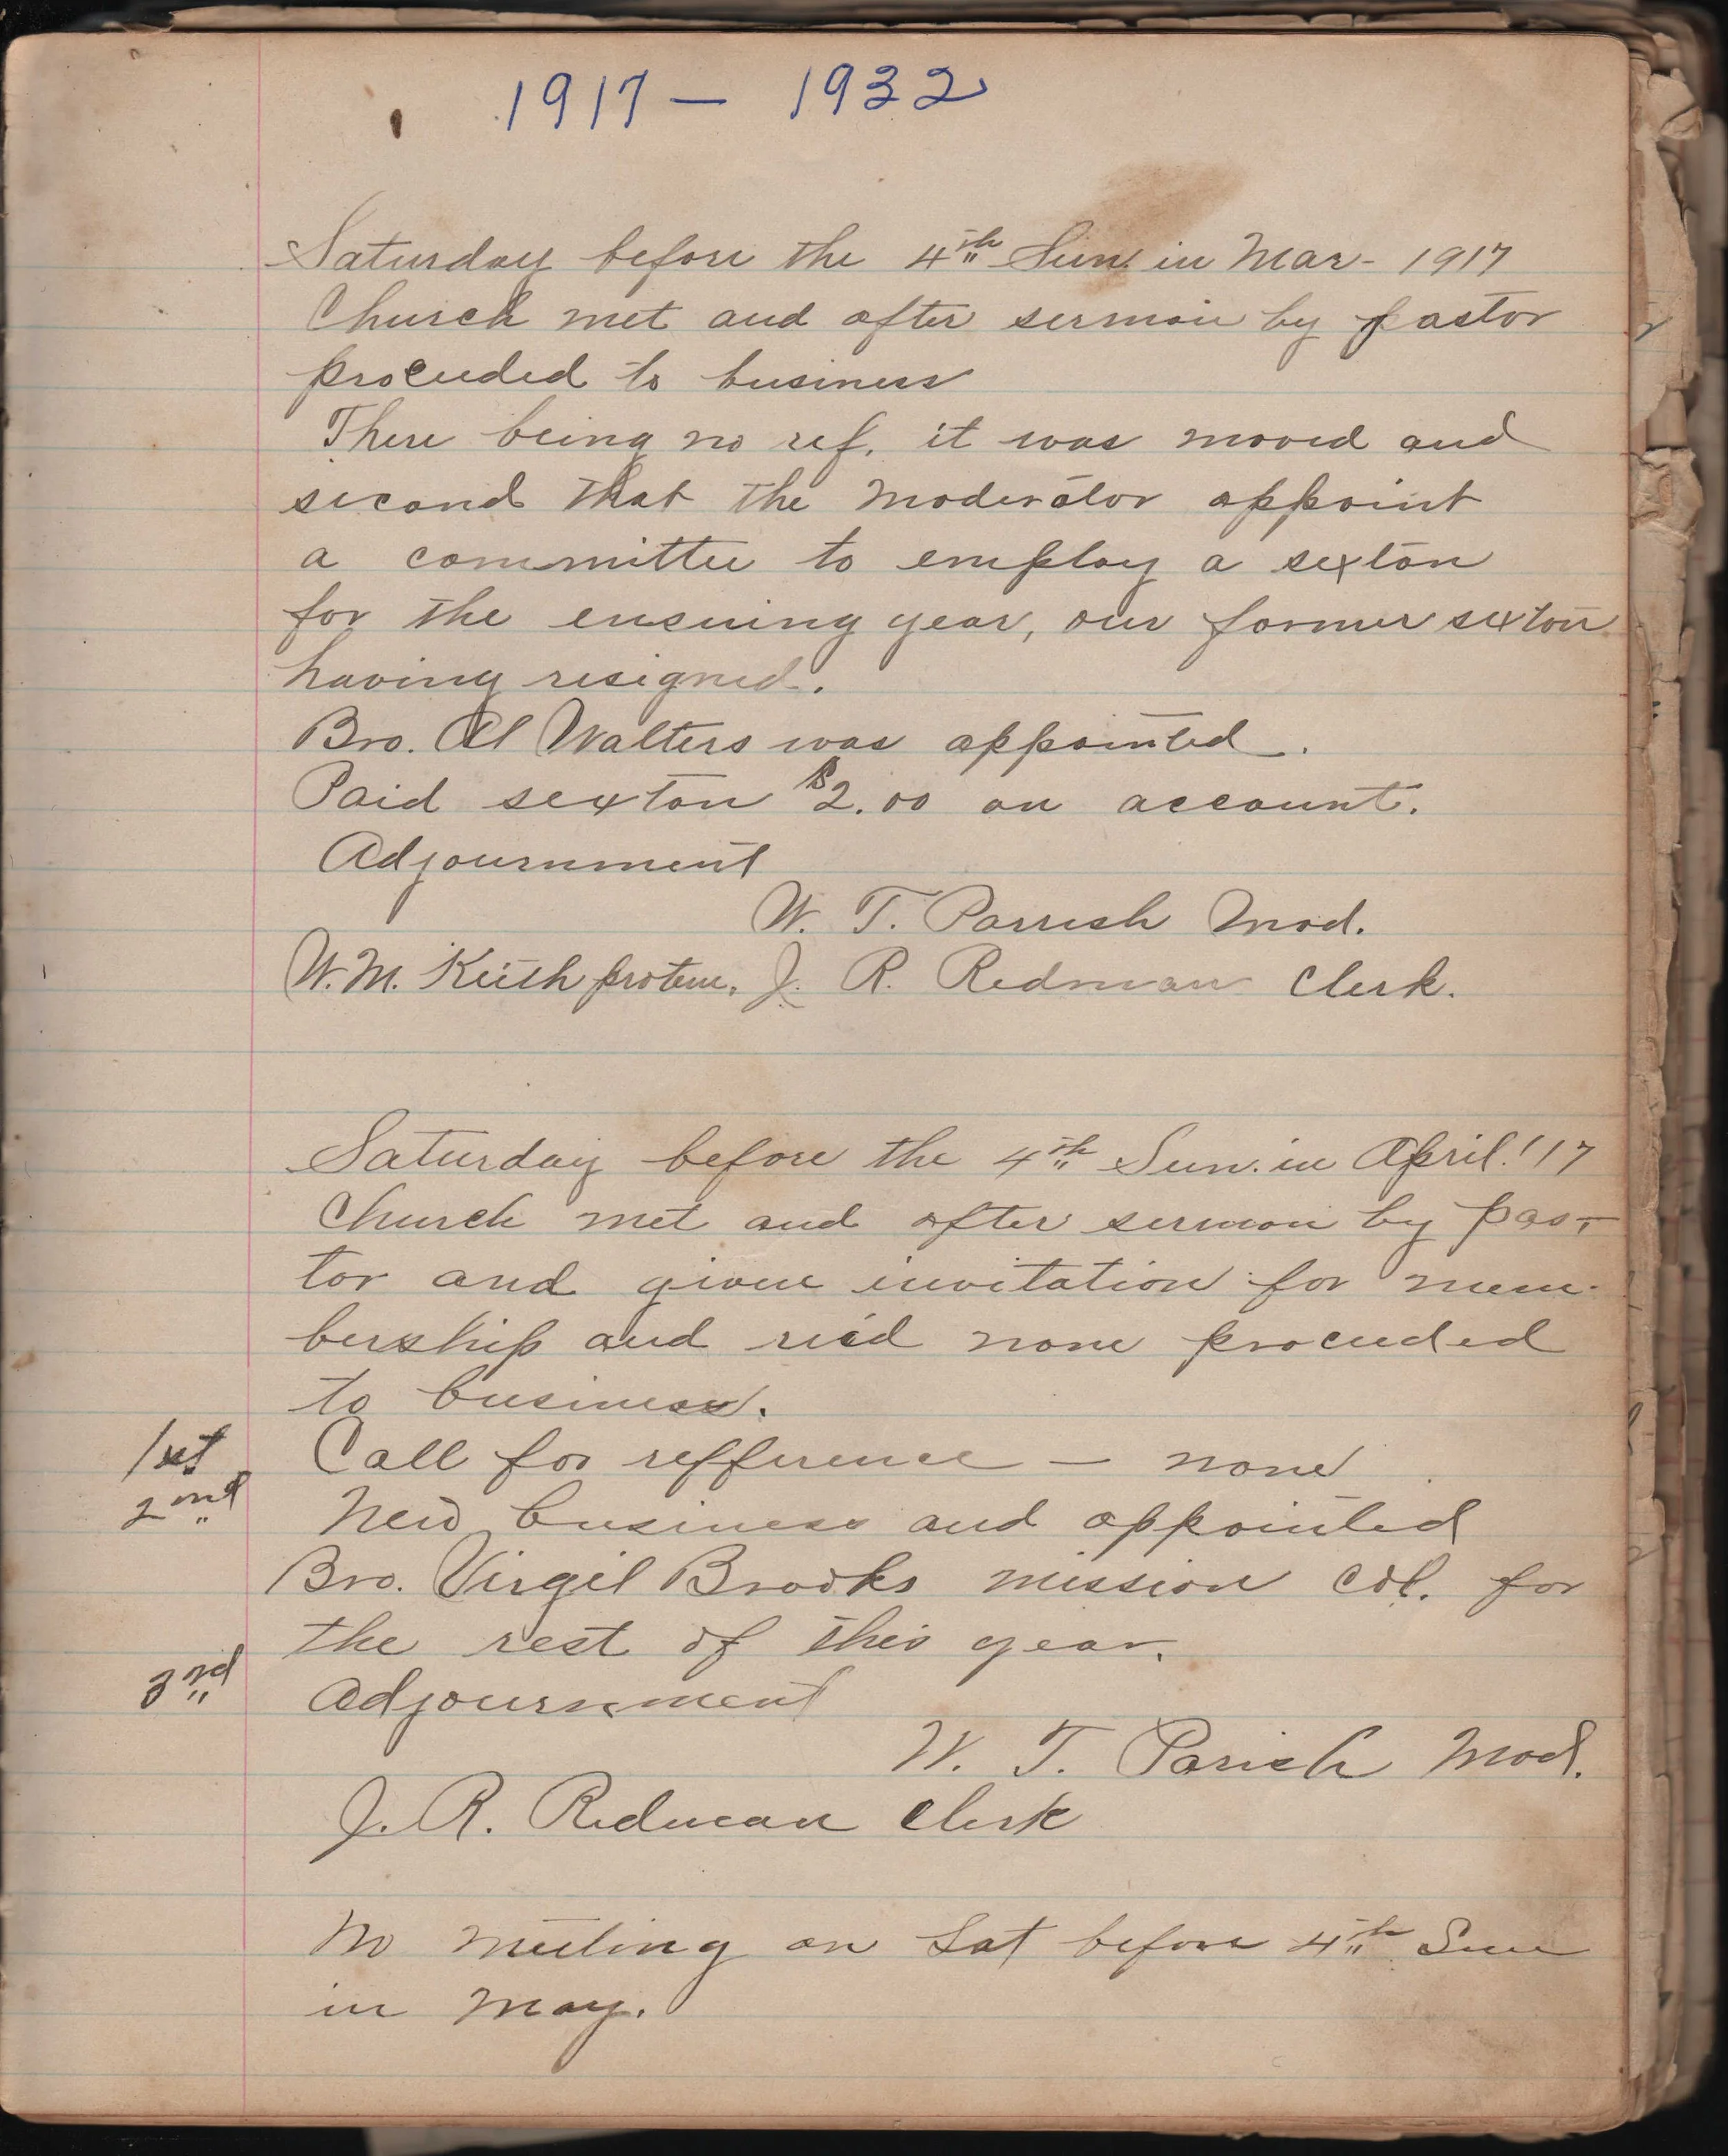 1917 — 1932
Saturday before the 4th Sun. in Mar- 1917
Church met and after sermon by pastor
proceeded to business
There being no ref. it was moved and
second that the Moderator appoint
a committee to employ a sexton
for the ensuing year, our former sexton
having resigned.
Bro. Al Walters was appointed.
Paid sexton $2.00 on account.
Adjournment
W. T. Parrish Mod.
W. M. Keith protem. J. R. Redman Clerk.
Saturday before the 4th Sun. in April. '17
Church met and after sermon by pas-
tor and given invitation for mem-
bership and rec'd none proceeded
to business.
1st Call for refference — none
2nd New business and appointed
Bro. Virgil Brooks mission col. for
the rest of this year.
3rd Adjournment
W. T. Parish Mod.
J. R. Redman Clerk
No meeting on Sat before 4th Sun
in May.